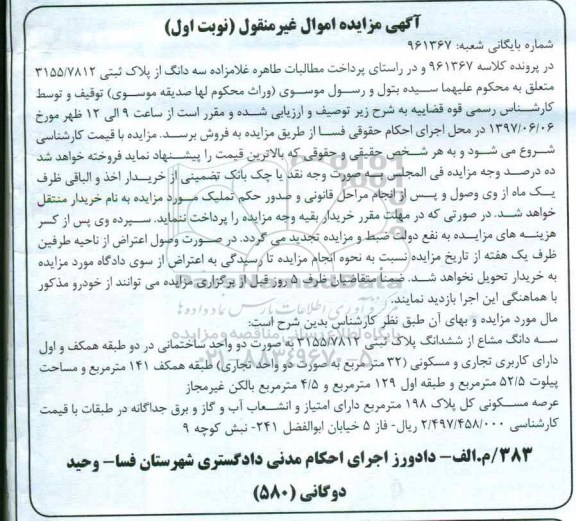 آگهی مزایده اموال غیرمنقول (نوبت اول)
شماره بایگانی شعبه: ۹۶۱۳۶۷
در پرونده کلاسه ۹۶۱۳۶۷ و در راستای پرداخت مطالبات طاهره غلامزاده سه دانگ از پلاک ثبتی ۳۱۵۵/۷۸۱۲
متعلق به محکوم علیهما سیده بتول و رسول موسوی (وراث محکوم لها صدیقه موسوی) توقیف و توسط
کارشناس رسمی قوه قضاییه به شرح زیر توصیف و ارزیابی شده و مقرر است از ساعت ۹ الی ۱۲ ظهر مورخ
۱۳۹۷/۰۶/۰۶ در محل اجرای احکام حقوقی فسا از طریق مزایده به فروش برسد. مزایده با قیمت کارشناسی
شروع می شود و به هر شخص حقیقی و حقوقی که بالاترین قیمت را پیشنهاد نماید فروخته خواهد شد
ده درصد وجه مزایده فی المجلس به صورت وجه نقد یا چک بانک تضمینی از خریدار اخذ و الباقی ظرف
یک ماه از وی وصول و پس از انجام مراحل قانونی و صدور حکم تملیک مورد مزایده به نام خریدار منتقل
خواهد شد. در صورتی که در مهلت مقرر خریدار بقیه وجه مزایده را پرداخت ننماید. سپرده وی پس از کسر
هزینه های مزایده به نفع دولت ضبط و مزایده تجدید می گردد. در صورت وصول اعتراض از ناحیه طرفین
ظرف یک هفته از تاریخ مزایده نسبت به نحوه انجام مزایده تا رسیدگی به اعتراض از سوی دادگاه مورد مزایده
به خریدار تحویل نخواهد شد. ضمنا متقاضیان ظرف ۵ روز قبل از برگزاری مزایده می توانند از خودرو مذکور
با هماهنگی این اجرا بازدید نمایند.
مال مورد مزایده و بهای آن طبق نظر کارشناس بدین شرح است:
سه دانگ مشاع از ششدانگ پلاک ثبتی ۳۱۵۵/۷۸۱۲ به صورت دو واحد ساختمانی در دو طبقه همکف و اول
دارای کاربری تجاری و مسکونی (۳۲ متر مربع به صورت دو واحد تجاری) طبقه همکف ۱۴۱ مترمربع و مساحت
پیلوت ۵۲/۵ مترمربع و طبقه اول ۱۲۹ مترمربع و ۴/۵ مترمربع بالکن غیرمجاز
عرصه مسکونی کل پلاک ۱۹۸ مترمربع دارای امتیاز و انشعاب آب و گاز و برق جداگانه در طبقات با قیمت
کارشناسی ۲/۴۹۷/۴۵۸/۰۰۰ ریال- فاز ۵ خیابان ابوالفضل ۲۴۱- نبش کوچه ۹
۳۸۳/م.الف- دادورز اجرای احکام مدنی دادگستری شهرستان فسا- وحید
دوگانی (۵۸۰)